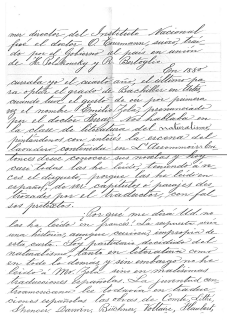 mer director del Instituto Nacional
fué el doctor O. Eusmann, suizo, traí-
do por el Gobierno al país en unión
de H. Polikowsky y R. Bertoglio
En 1880
cursaba yo el cuarto año, el último pa-
ra optar el grado de Bachiller en Artes,
cuando tuve el gusto de oír por primera
vez el nombre "Emilio Zola", pronunciado
por el doctor . Nos hablaba en
la clase de literatura del naturalismo
pintándonos con motivo la escena del
lavadero, contenida en L'Assommoir. En-
tonces deseé conocer sus novelas y hoy
casi todas las he leído, teniendo a ve-
ces el disgusto, porque las he leído en
español, de ver capítulos o pasajes des-
trozados por el traductor, con fal
ser pretextos.
¿Por qué me dirá Ud. no
las he leído en francés? La respuesta sería
una historia, aunque curiosa, impropia de
esta carta. Soy partidario decidido del
naturalismo, tanto en literatura como
en todo lo demás, y sin embargo no he
leído a Mr. Zola sino en malísimas
traducciones españolas. La juventud cen-
troamericana ha debido a las traduc-
ciones españolas las obras de Comte, Littré,
Spencer, Darwin, Büchner, Voltaire, Flaubert,